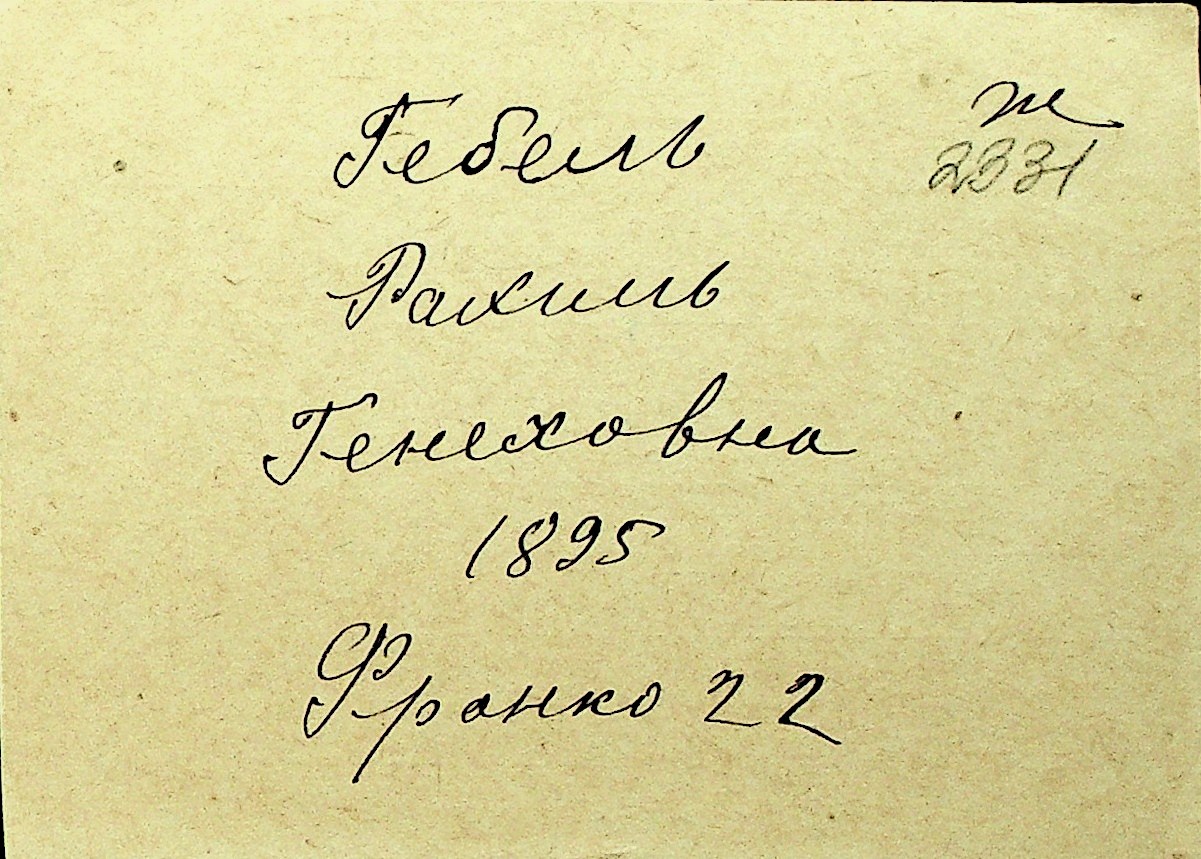 Гебель
ж
2331
Рахиль
Генеховна
1895
Франко 22